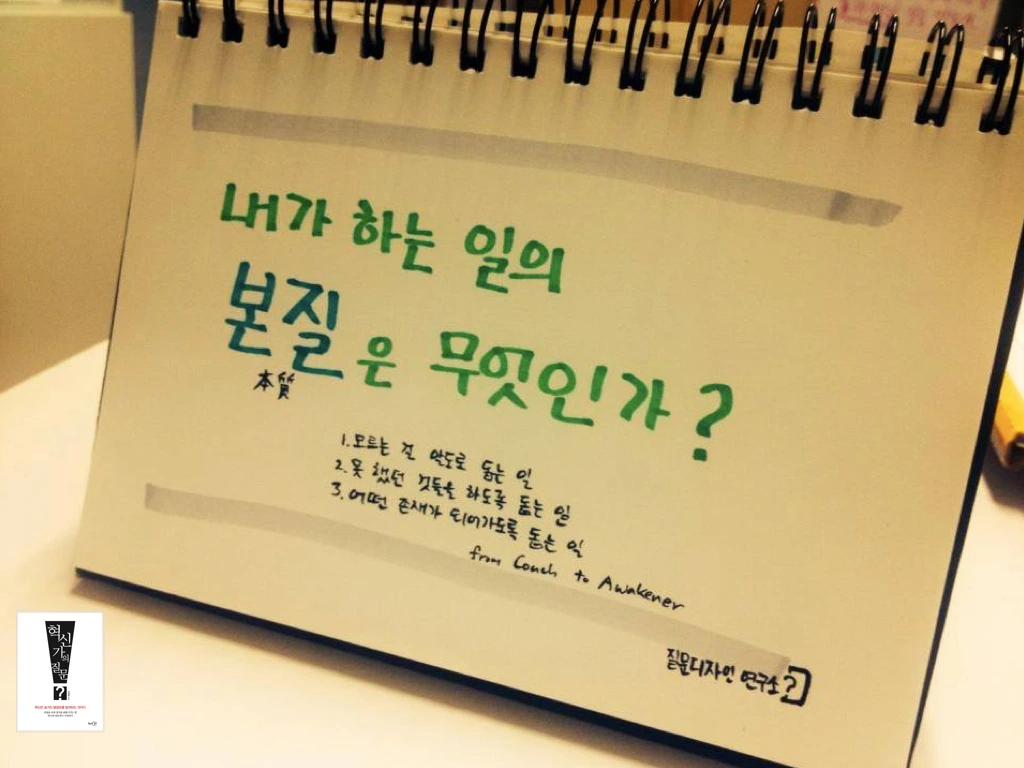 내가 하는 일의
본질은 무엇인가?
本質
1. 모르는 걸 알도록 돕는 일
2. 못 했던 것들을 하도록 돕는 일
3. 어떤 존재가 되어가도록 돕는 일
from Coach to Awakener
질문디자인 연구소?
혁신
가의
질문
?